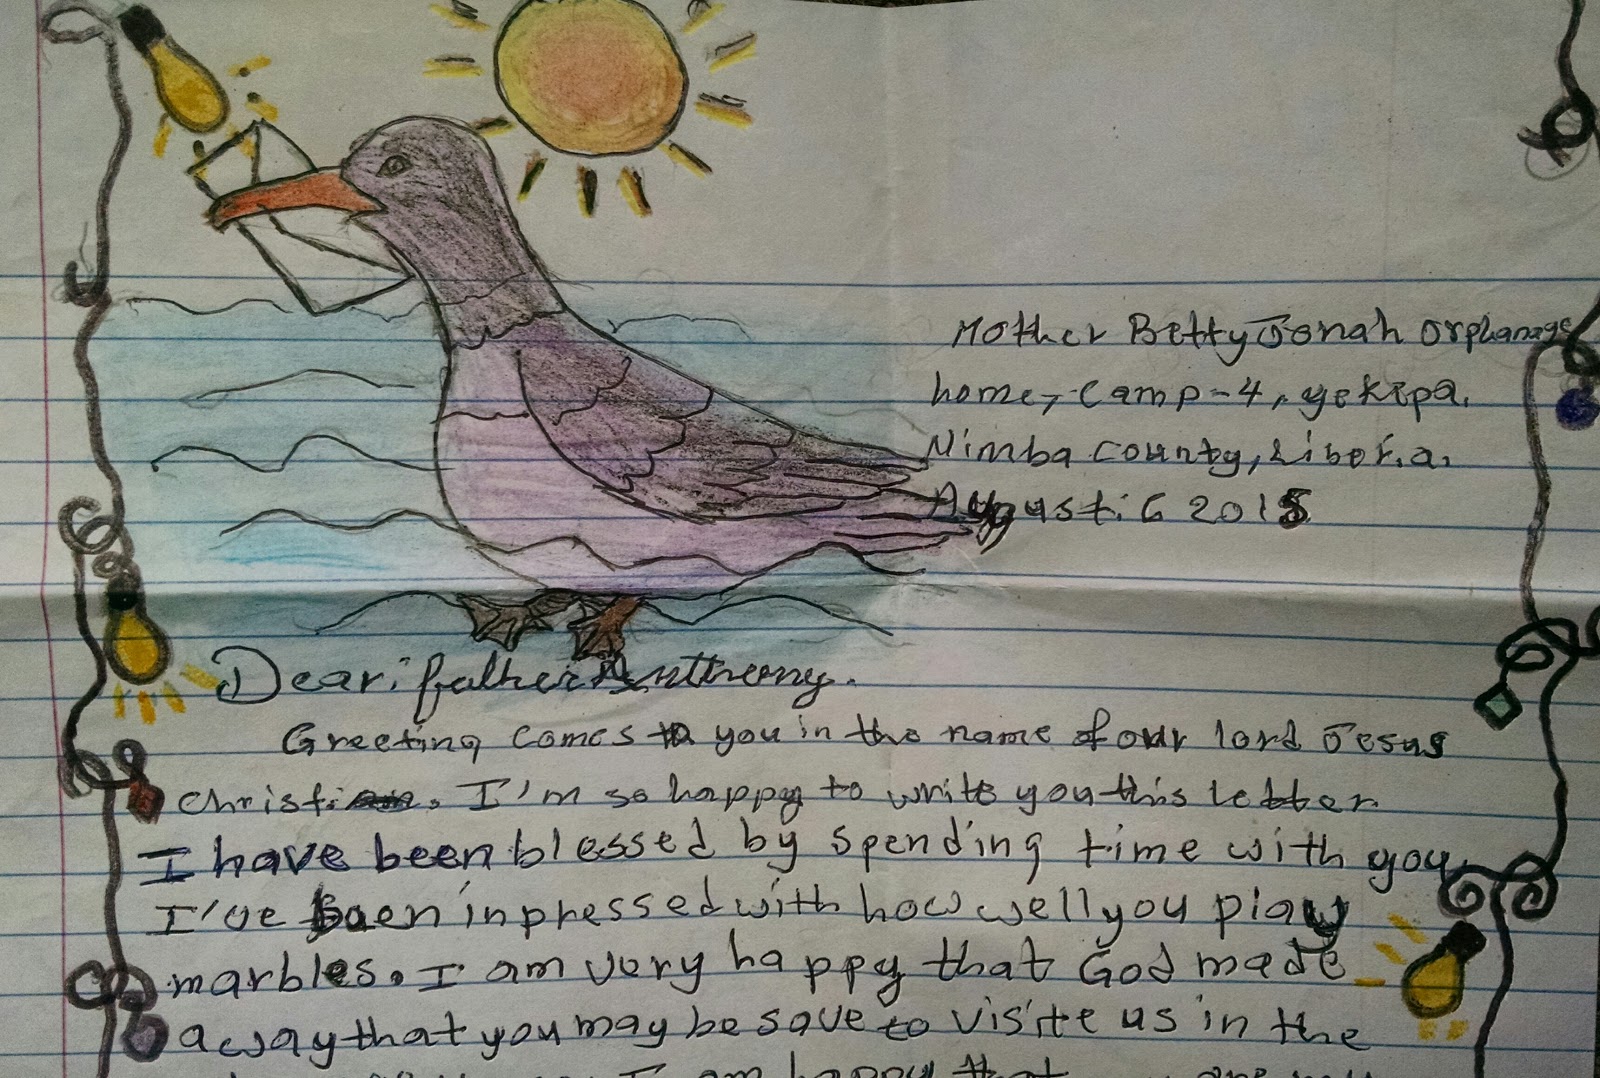 Mother Betty Jonah orphanage
home, Camp-4, yekepa.
Nimba county, Liberia.
August. 6 2015
Dear: father Anthony.
Greeting comes to you in the name of our lord Jesus
christ. I'm so happy to write you this letter
I have been blessed by spending time with you
I've been inpressed with how well you play
marbles. I am very happy that God made
a way that you may be save to visite us in the
I am happy that